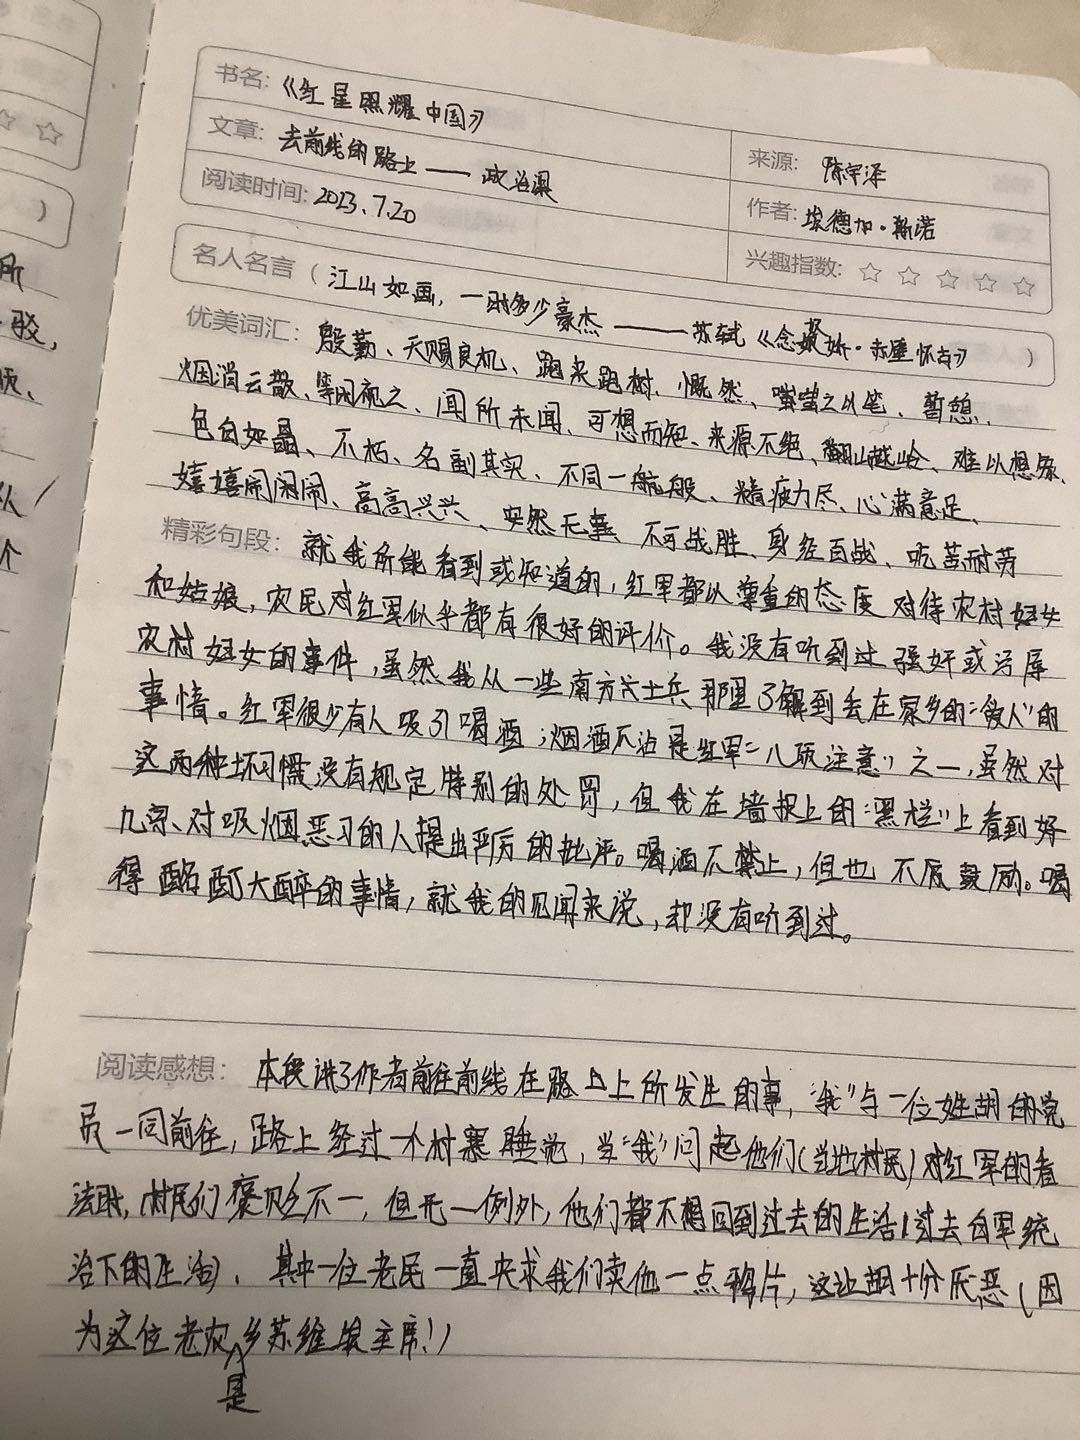 书名:《红星照耀中国》
文章: 去前线的路上——政治课
来源: 陈宇泽
阅读时间: 2023.7.20
作者: 埃德加·斯诺
兴趣指数: ☆ ☆ ☆ ☆ ☆
名人名言 ( 江山如画,一时多少豪杰 ——苏轼《念奴娇·赤壁怀古》 )
优美词汇: 殷勤、天赐良机、跑来跑树、慨然、嗤之以笔、暂憩、
烟消云散、等闲视之、闻所未闻、可想而知、来源不绝、翻山越岭、难以想象、
色白如晶、不朽、名副其实、不同一般、精疲力尽、心满意足、
嬉嬉闹闹、高高兴兴、安然无事、不可战胜、身经百战、吃苦耐劳
精彩句段: 就我所能看到或知道的,红军都以尊重的态度对待农村妇女
和姑娘,农民对红军似乎都有很好的评价。我没有听到过强奸或污辱
农村妇女的事件,虽然我从一些南方士兵那里了解到丢在家乡的“爱人”的
事情。红军很少有人吸引喝酒;烟酒不沾是红军“八项注意”之一,虽然对
这两种坏习惯没有规定特别的处罚,但我在墙报上的“黑栏”上看到好
几宗、对吸烟恶习的人提出严厉的批评。喝酒不禁止,但也不反鼓励。喝
得酩酊大醉的事情,就我的见闻来说,却没有听到过。
阅读感想: 本段讲了作者前往前线在路上上所发生的事,“我”与一位姓胡的党
员一同前往,路上经过一个村寨睡觉,当“我”问起他们(当地村民)对红军的看
法时,村民们褒贬不一,但无一例外,他们都不想回到过去的生活(过去白军统
治下的生活)、其中一位老民一直央求我们卖他一点鸦片,这让胡十分厌恶(因
为这位老农是乡苏维埃主席!)